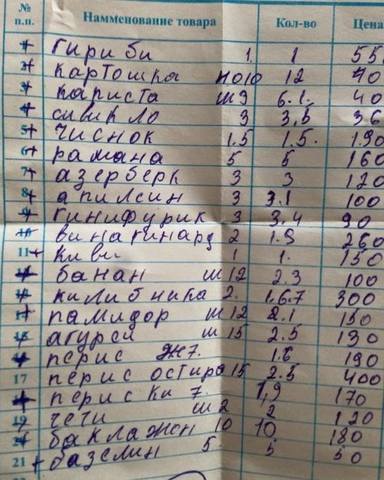 № п.п. Наименование товара Кол-во Цена
1 гириби 1. 1 55
2 картошка 12 70
3 каписта ш 9 6.1. 40
4 сивикло 3 3,5 36
5 чиснок 1.5 1.5. 190
6 рамана 5 5 160
7 азерберк 3 3 120
8 апилсин 3 3.1 100
9 гинифурик 3 3,4 90
10 винагинард 2 1.9 260
11 киви 1 1. 150
банан ш 12 2.3 100
килибника 2. 1.6.7 300
памидор ш 12 2.1 150
15 агурси ш 15 2.5 130
перис ж 7. 1.8 190
17 перис остира 15 2.5 400
периски 7. 1,9 170
19 чети ш 2 2 120
баклажен 10 10 180
21 базелин 5 5 50
22